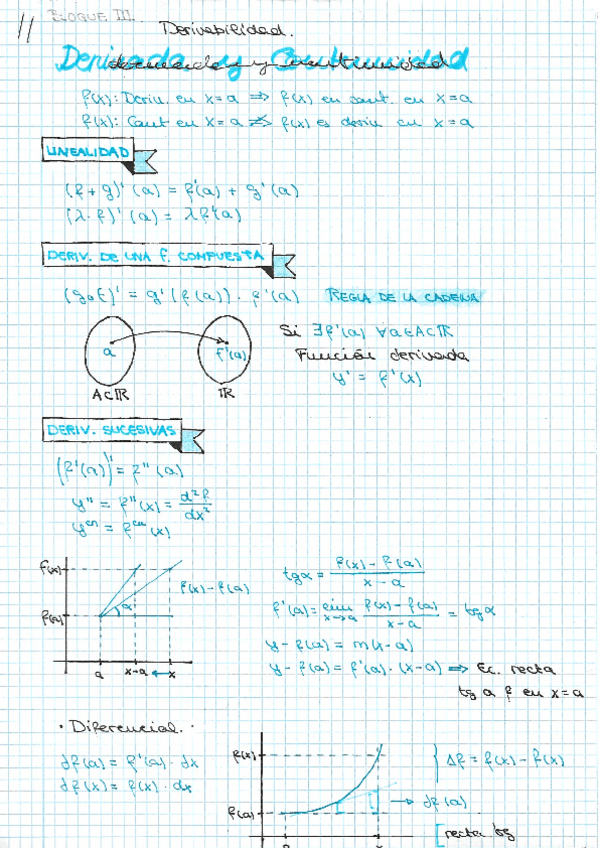 11 BLOQUE III.
Derivabilidad.
Derivada y Continuidad
f(x): Deriv. en x=a ⇒ f(x) en cont. en x=a
f(x): Cont en x=a ⇏ f(x) es deriv en x=a
LINEALIDAD
(f+g)'(a) = f'(a) + g'(a)
(λ·f)'(a) = λf'(a)
DERIV. DE UNA f. COMPUESTA
(g∘f)' = g'(f(a))·f'(a) REGLA DE LA CADENA
Si ∃f'(a) ∀a∈A⊂ℝ
a f'(a) Función derivada
y' = f'(x)
A⊂ℝ ℝ
DERIV. SUCESIVAS
(f'(a))' = f''(a)
y'' = f''(x) = d²f/dx²
y⁽ⁿ = f⁽ⁿ(x)
f(x) f(x)-f(a) tgα = f(x)-f(a)/x-a
α
f(a) f'(a) = lim x→a f(x)-f(a)/x-a = tgα
y-f(a) = m(x-a)
a x→a ← x y-f(a) = f'(a)·(x-a) ⇒ Ec. recta
tg a f en x=a
· Diferencial.·
df(a) = f'(a)·dx f(x) Δf = f(x)-f(x)
df(x) = f(x)·dx
f(a) → df(a)
recta tg